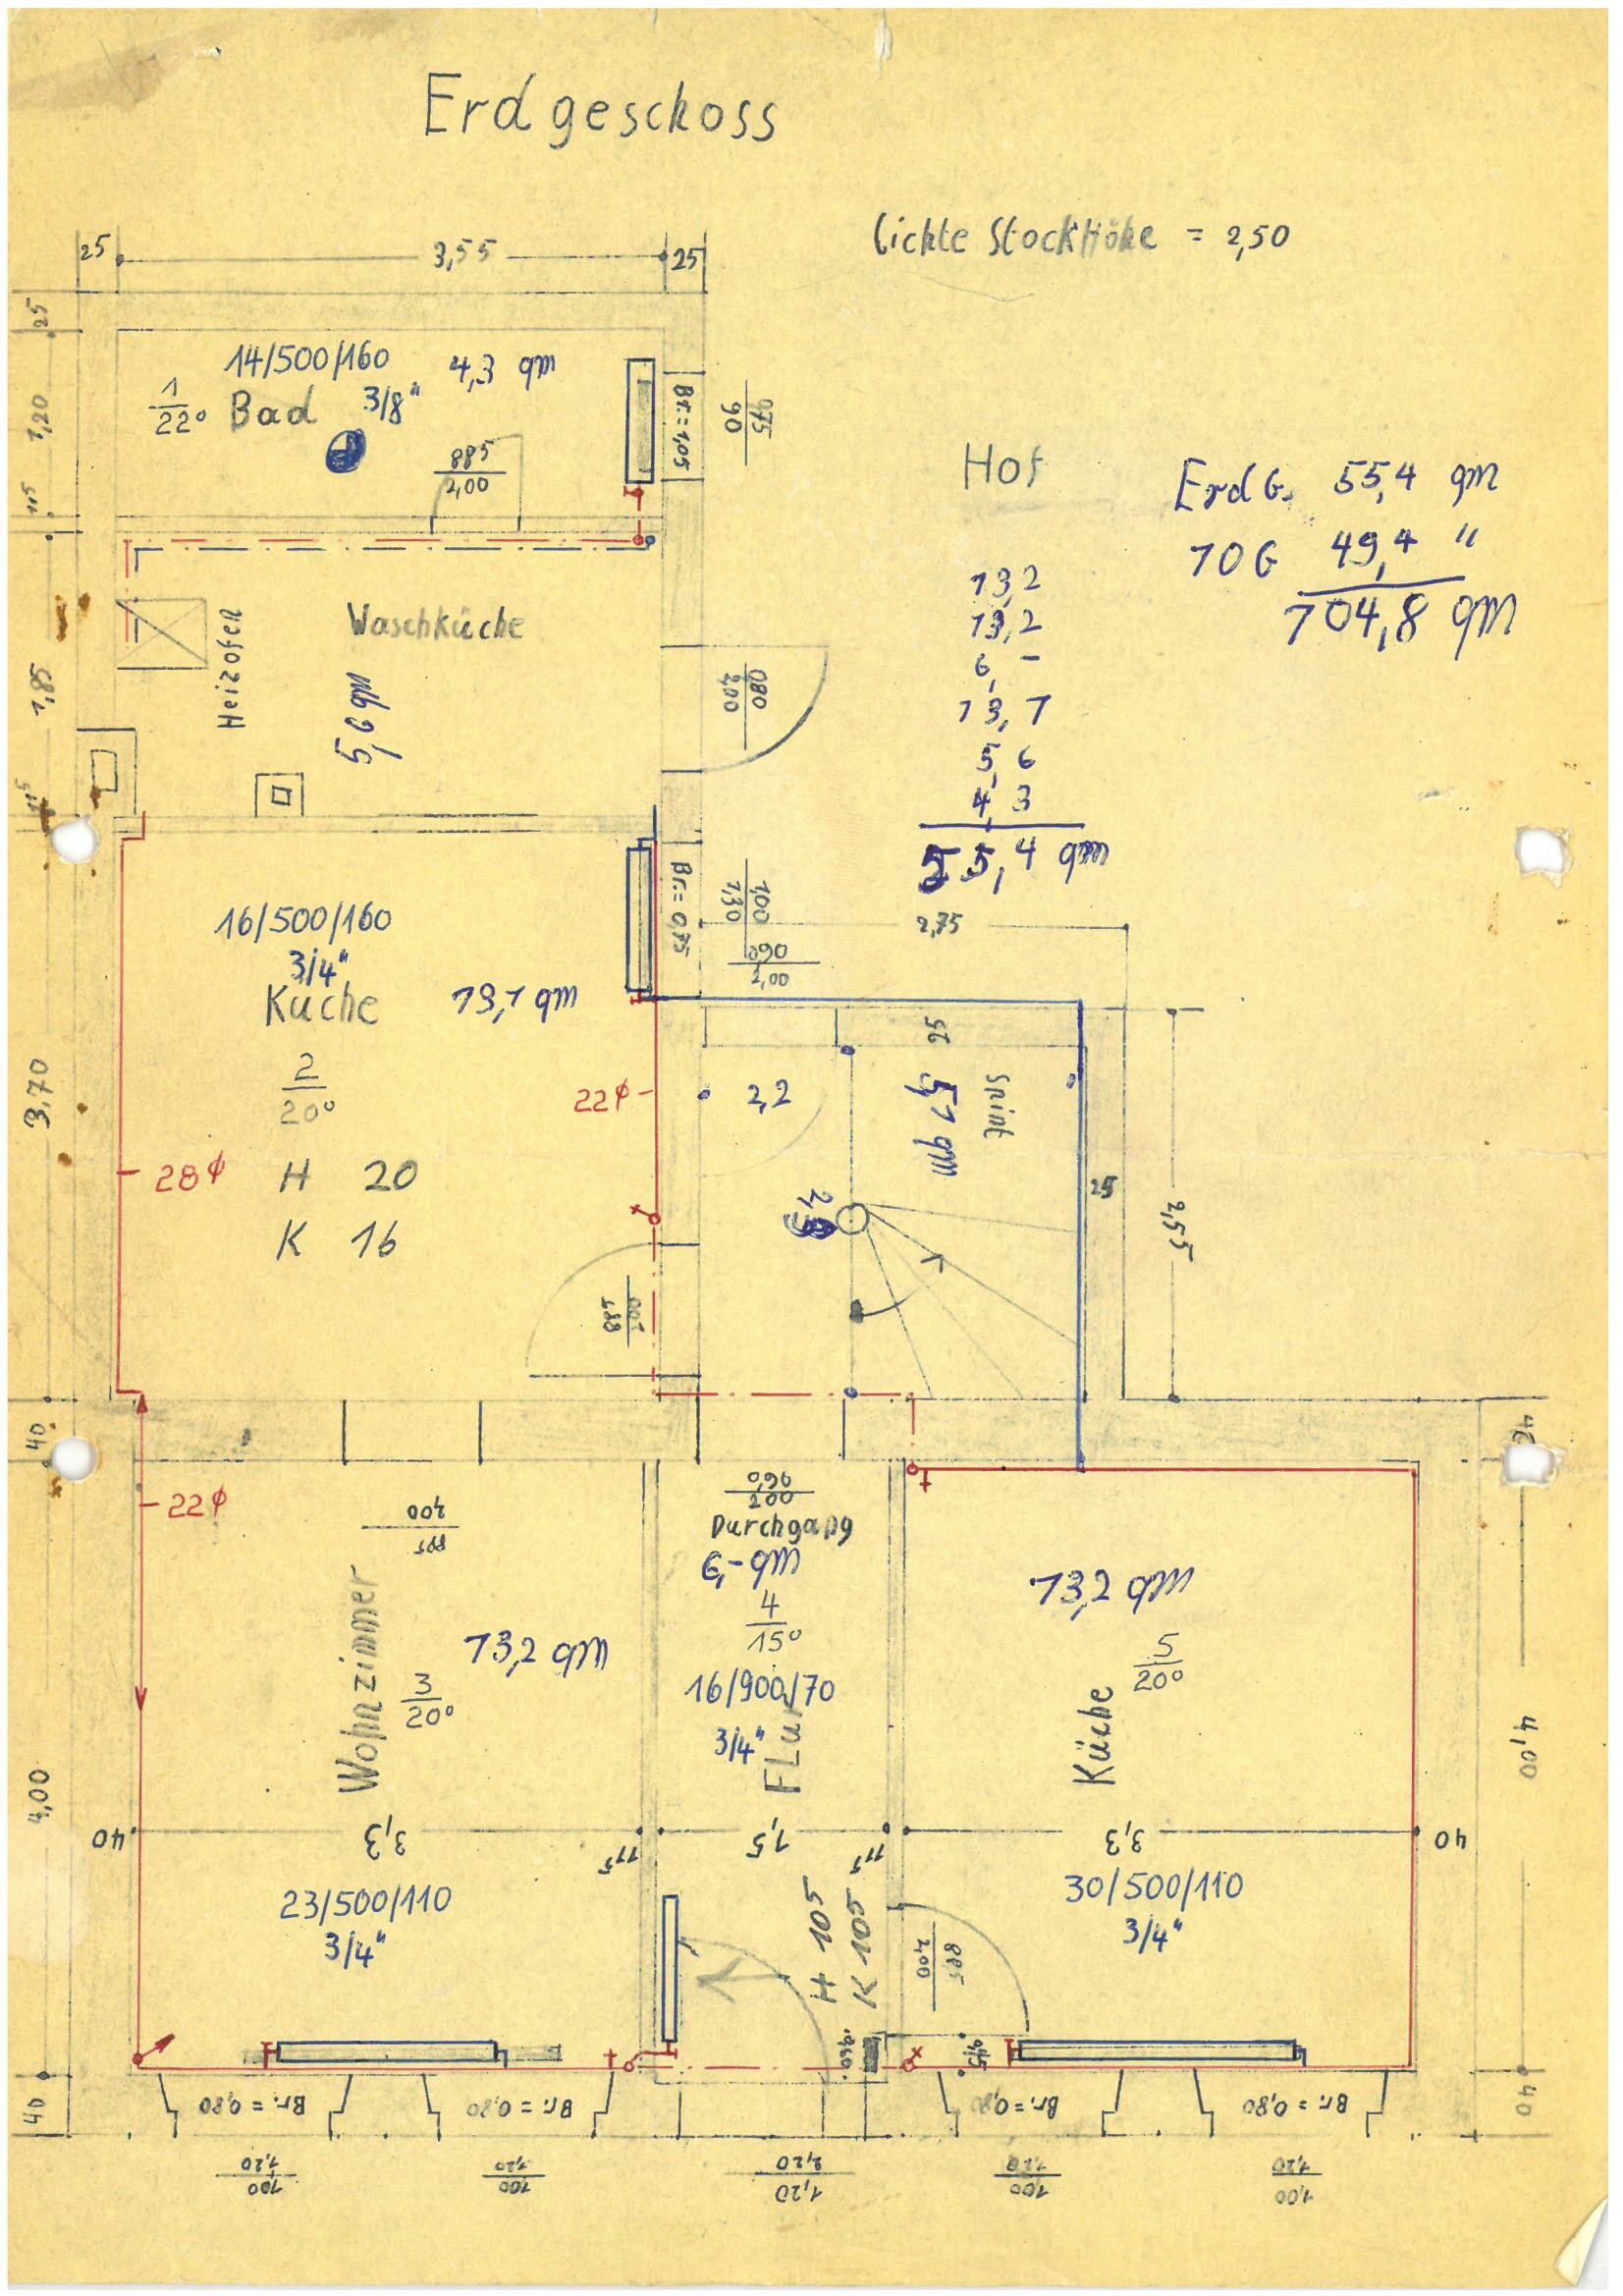 Erdgeschoss
lichte StockHöhe = 2,50
25 3,55 25
25
14/500/160 4,3 qm
1/22° Bad 3/8"
885/2,00
Br.=1,05
975/90
1,20
11,5
Hof
ErdG. 55,4 qm
1OG 49,4 "
104,8 qm
13,2
13,2
6,-
13,7
5,6
4,3
55,4 qm
Heizofen
Waschküche
5,6 qm
1,85
080/2,00
11,5
16/500/160
3/4"
Küche 13,7 qm
2/20°
H 20
K 16
3,70
28⌀
22⌀
Br.= 0,75
1,00/1,30
0,90/2,00
2,75
25
Spint
5,1 qm
2,2
25
2,55
885/2,00
40
40
22⌀
885/2,00
Wohnzimmer
3/20°
13,2 qm
0,90/2,00
Durchgang
6,- qm
4/15°
16/900/70
3/4"
FLur
13,2 qm
Küche
5/20°
4,00
4,00
40 3,3 11,5 1,5 11,5 3,3 40
23/500/110
3/4"
H 105
K 105
30/500/110
3/4"
885/2,00
40
Br. = 0,80 Br. = 0,80 Br. = 0,80 Br. = 0,80
40
1,00/1,20 1,00/1,20 1,20/2,20 1,00/1,20 1,00/1,20